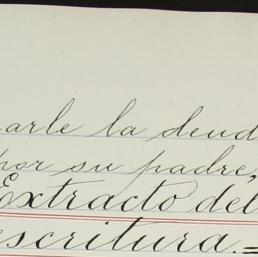 arle la deud
por su padre,
Extracto del
escritura.=